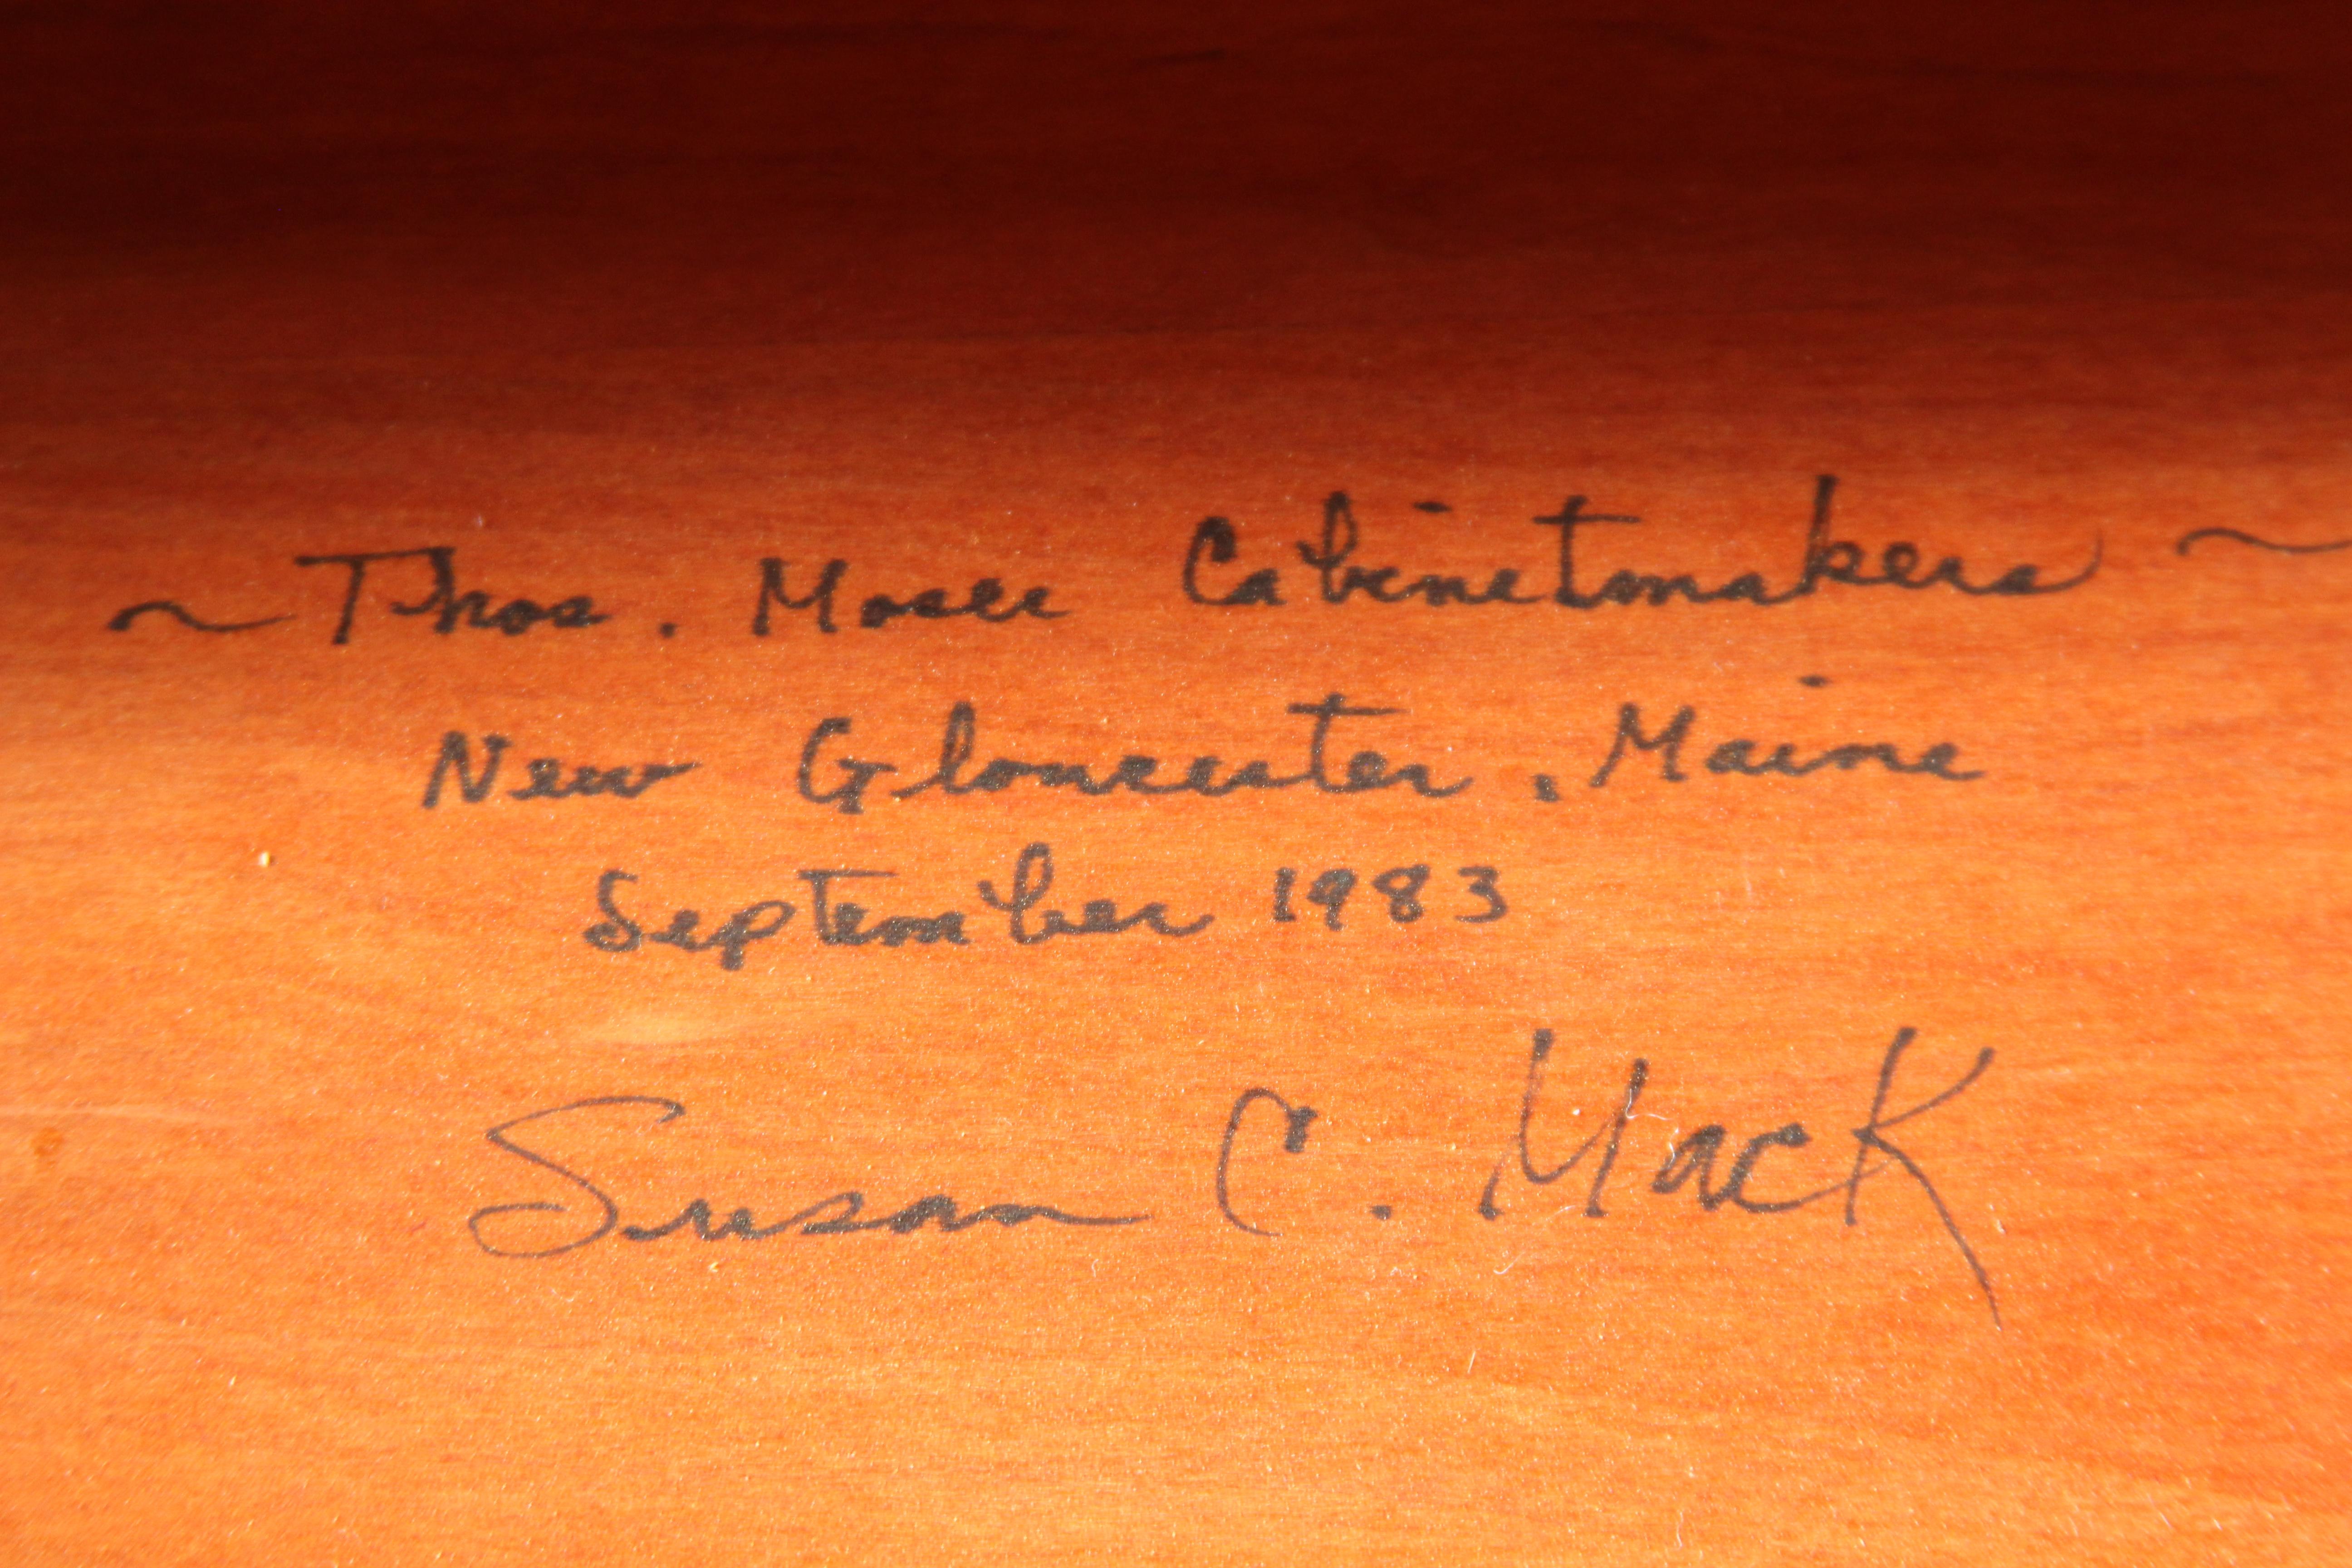 ~ Thos. Moser Cabinetmakers ~
New Gloucester, Maine
September 1983
Susan C. Mack